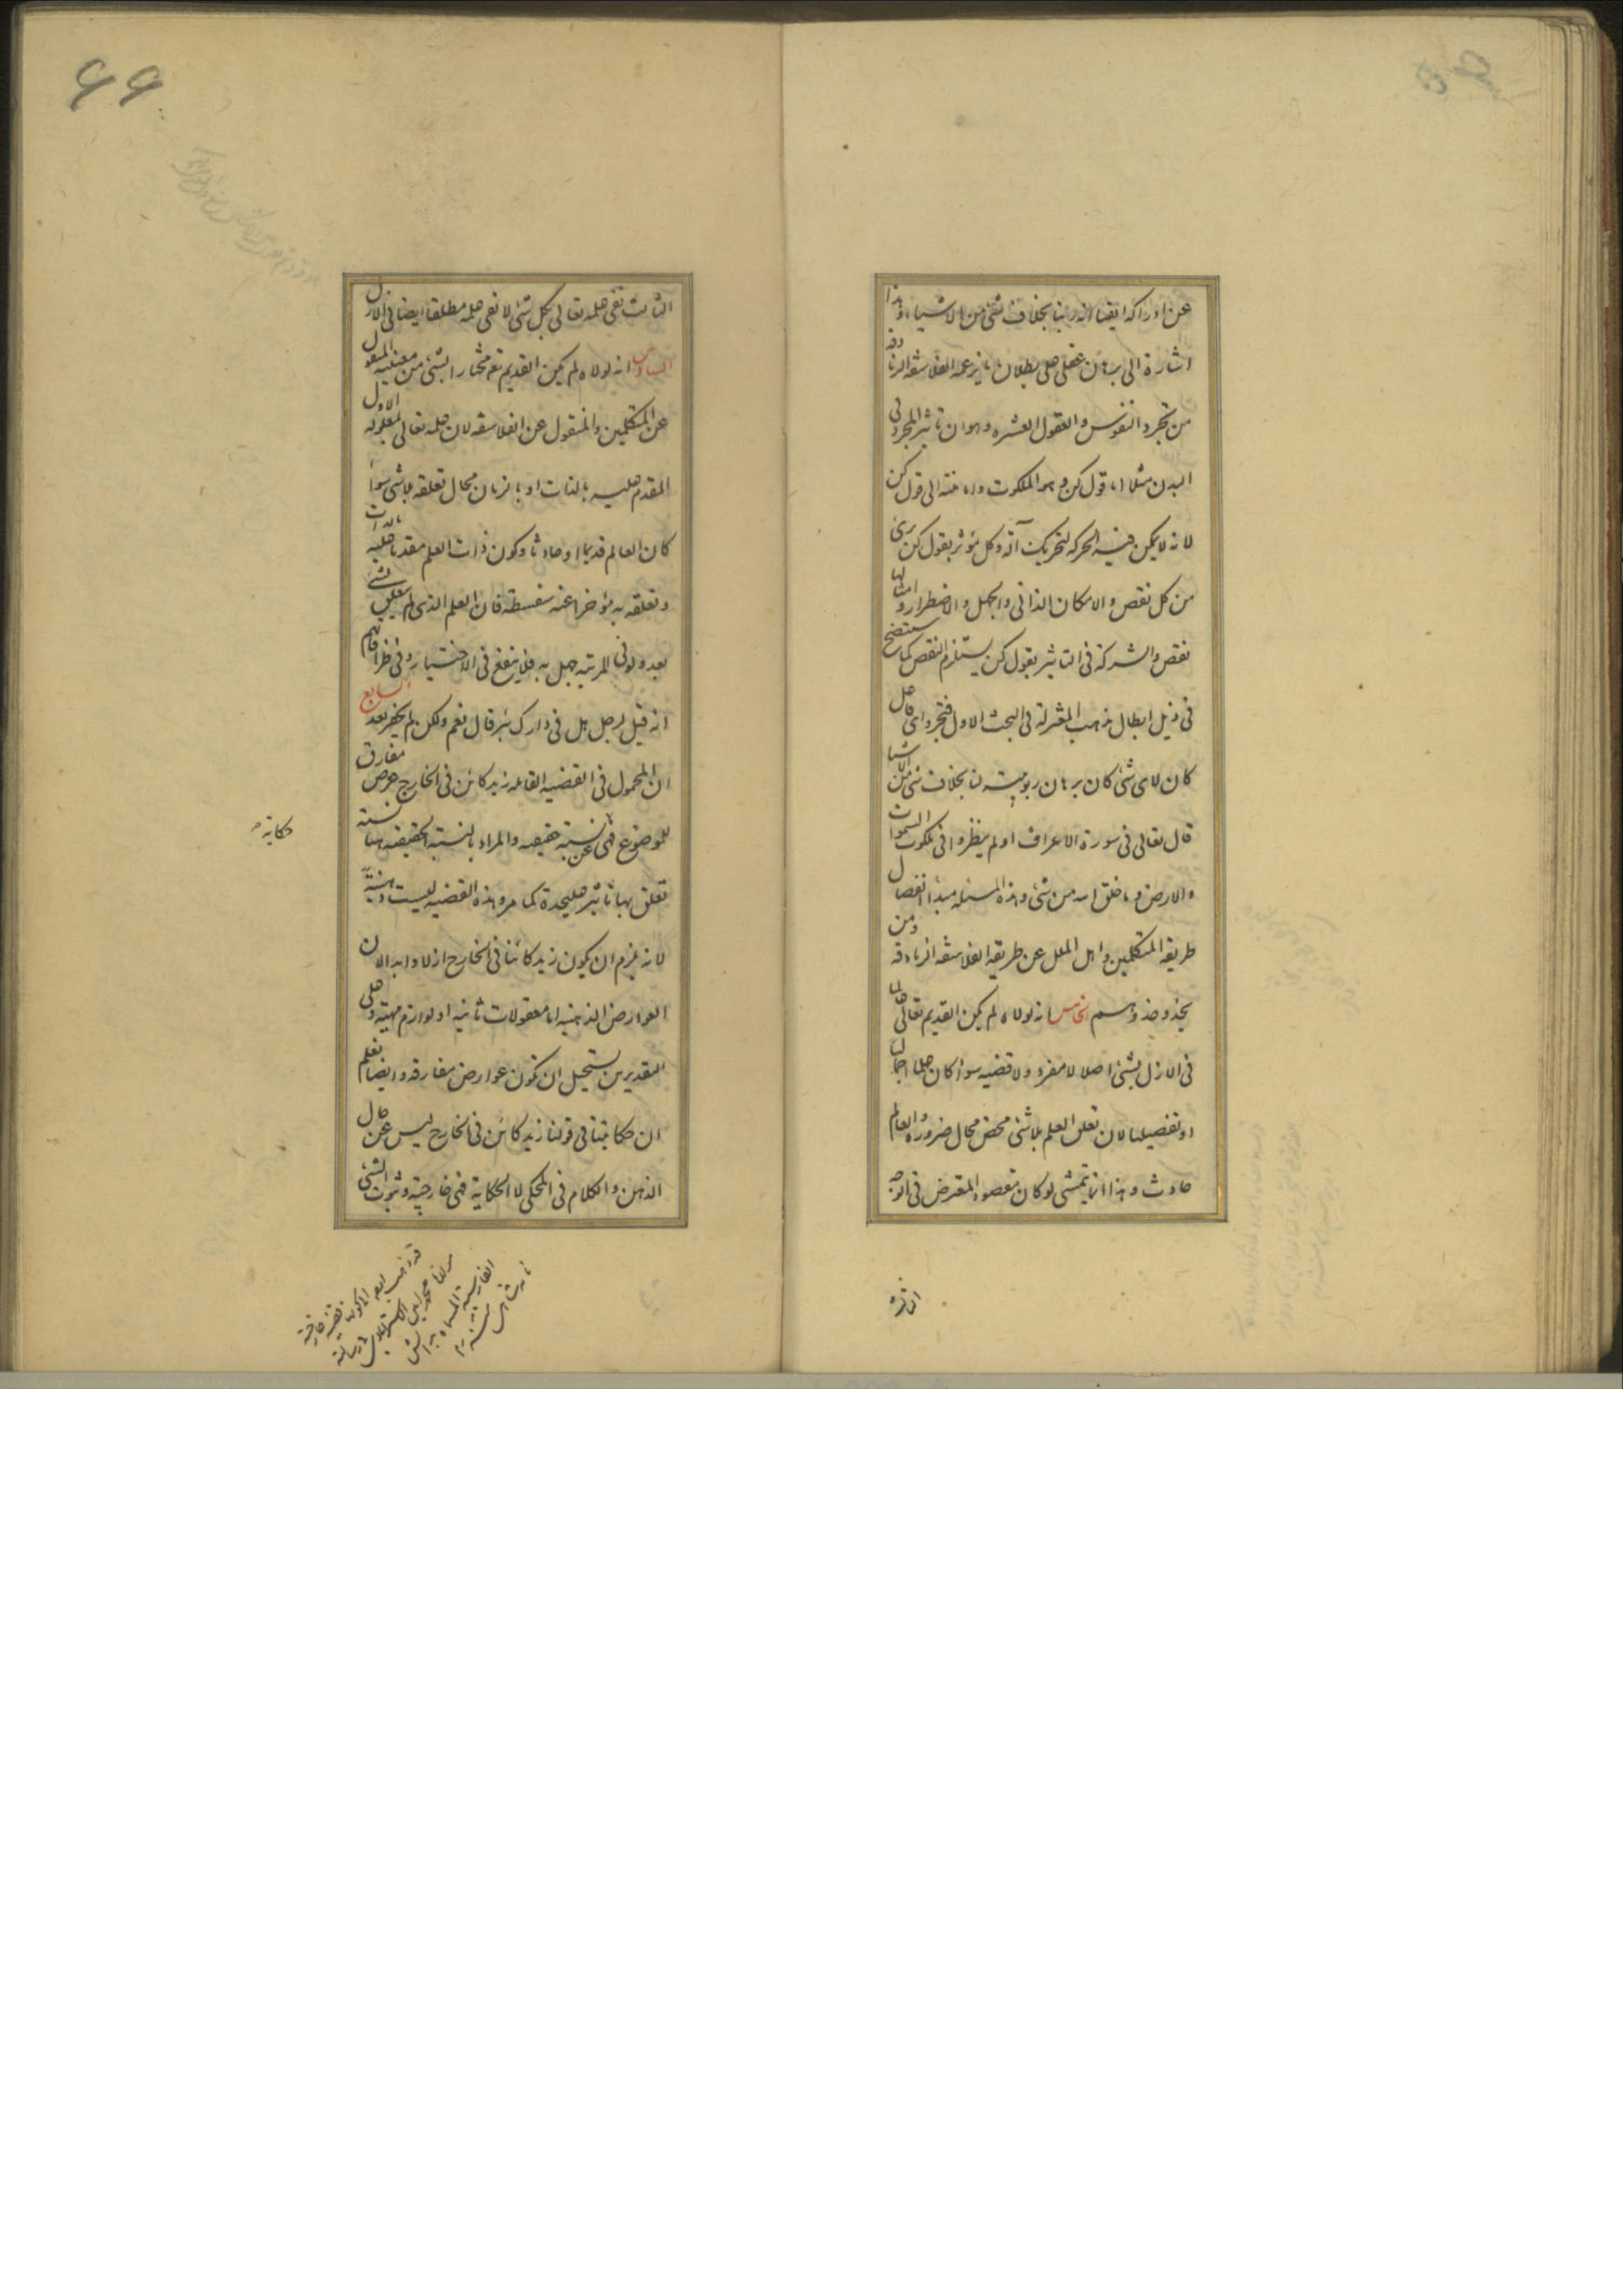 عن ادراكه ايقنا انه ربنا بخلاف شئ من الاشياء وهذا
اشارة الى برهان عقلى على بطلان ما يزعمه الفلاسفه الزنادقه
من تجرد النفوس والعقول العشره وهو ان تاثير المجرد فى
البدن مثلا بقول كن وهو الملكوت والا فننته الى قول كن
لانه لا يمكن فيه الحركه لتحريك آلة وكل مؤثر بقول كن برى
من كل نقص والامكان الذاتى والجهل والاضطرار وامثالها
نقص والشركة فى التاثير بقول كن يستلزم النقص كما سيتضح
فى ذيل ابطال مذهب المعتزلة فى البحث الاول فتجرد اى فاعل
كان لاى شئ كان برهان ربوبيته لنا بخلاف شئ من الاشيا
قال تعالى فى سورة الاعراف اولم ينظروا فى ملكوت السموات
والارض وما خلق الله من شئ وهذه المسئله مبدأ انفصال
طريقه المتكلمين واهل الملل عن طريقه الفلاسفه الزنادقه ومن
يحذو حذوهم الخامس انه لولاه لم يكن القديم تعالى عالما
فى الازل بشئ اصلا لا مفرد ولا قضيه سواء كان علما اجماليا
او تفصيليا لان تعلق العلم بلا شئ محض محال ضرورة والعالم
حادث وهذا انما يتمشى لو كان مقصود المعترض فى الوجه
الثالث
الثالث نفى علمه تعالى بكل شئ لا نفى علمه مطلقا ايضا فى الازل
السادس انه لولاه لم يكن القديم تعم مختارا بشئ من معنييه المنقول
عن المتكلمين والمنقول عن الفلاسفه لان علمه تعالى بمعلوله الاول
المقدم عليه بالذات او بالزمان محال تعلقه بلا شئ سواء
كان العالم قديما او حادثا وكون ذات العلم مقدما عليه بالذات
وتعلقه به مؤخرا عنه سفسطة فان العلم الذى لم يتعلق بشئ
بعد ولو فى المرتبه جهل به فلا ينفع فى الاختيار وفى ظرافاتهم
انه قيل لرجل هل فى دارك بئر قال نعم ولكن لم يحفر بعد السابع
ان المحمول فى القضيه القائله زيد كائن فى الخارج عرض مفارق
للموضوع فهى عن نسبة حقيقيه والمراد بالنسبة الحقيقيه هنا نسبة
حكاية
تعلق بها تاثير عليحدة كما مر وهذه القضيه ليست ذهنية
لانه يلزم ان يكون زيد كائنا فى الخارج ازلا وابدا لان
العوارض الذهنيه اما معقولات ثانيه او لوازم مهيته وعلى
التقديرين يستحيل ان تكون عوارض مفارقه وايضا نعلم
ان حكايتنا فى قولنا زيد كائن فى الخارج ليس عن حال
الذهن والكلام فى المحكى لا الحكاية فهى خارجية وثبوت الشئ
مولانا محمد امين الاسترابادى فى رسالته
الفارسية المسماة بدانش
نامه شاهى منه
۶۶